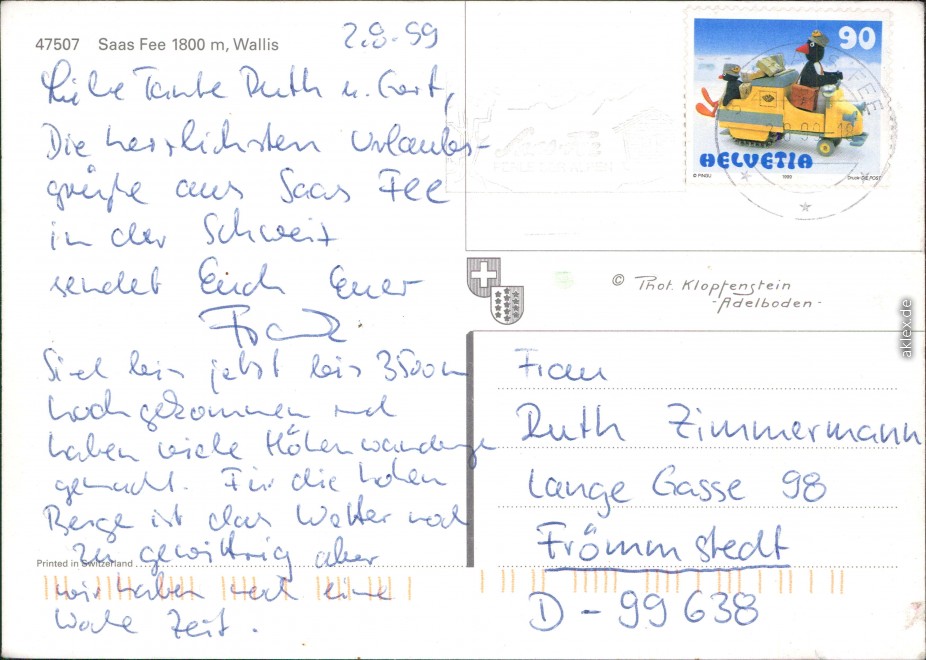 47507 Saas Fee 1800 m, Wallis
2.8.99
Liebe Tante Ruth u. Gert,
Die herzlichsten Urlaubs-
grüße aus Saas Fee
in der Schweiz
sendet Euch Euer
Frank
Sind bis jetzt bis 3500m
hoch gekommen und
haben viele Höhenwanderungen
gemacht. Für die hohen
Berge ist das Wetter noch
zu gewittrig aber
wir haben noch eine
Woche Zeit.
Printed in Switzerland
90
HELVETIA
© PINGU 1999 DIE POST
SAAS-FEE
© Thot. Klopfenstein
- Adelboden -
Frau
Ruth Zimmermann
Lange Gasse 98
Frömmstedt
D - 99638
aklex.de